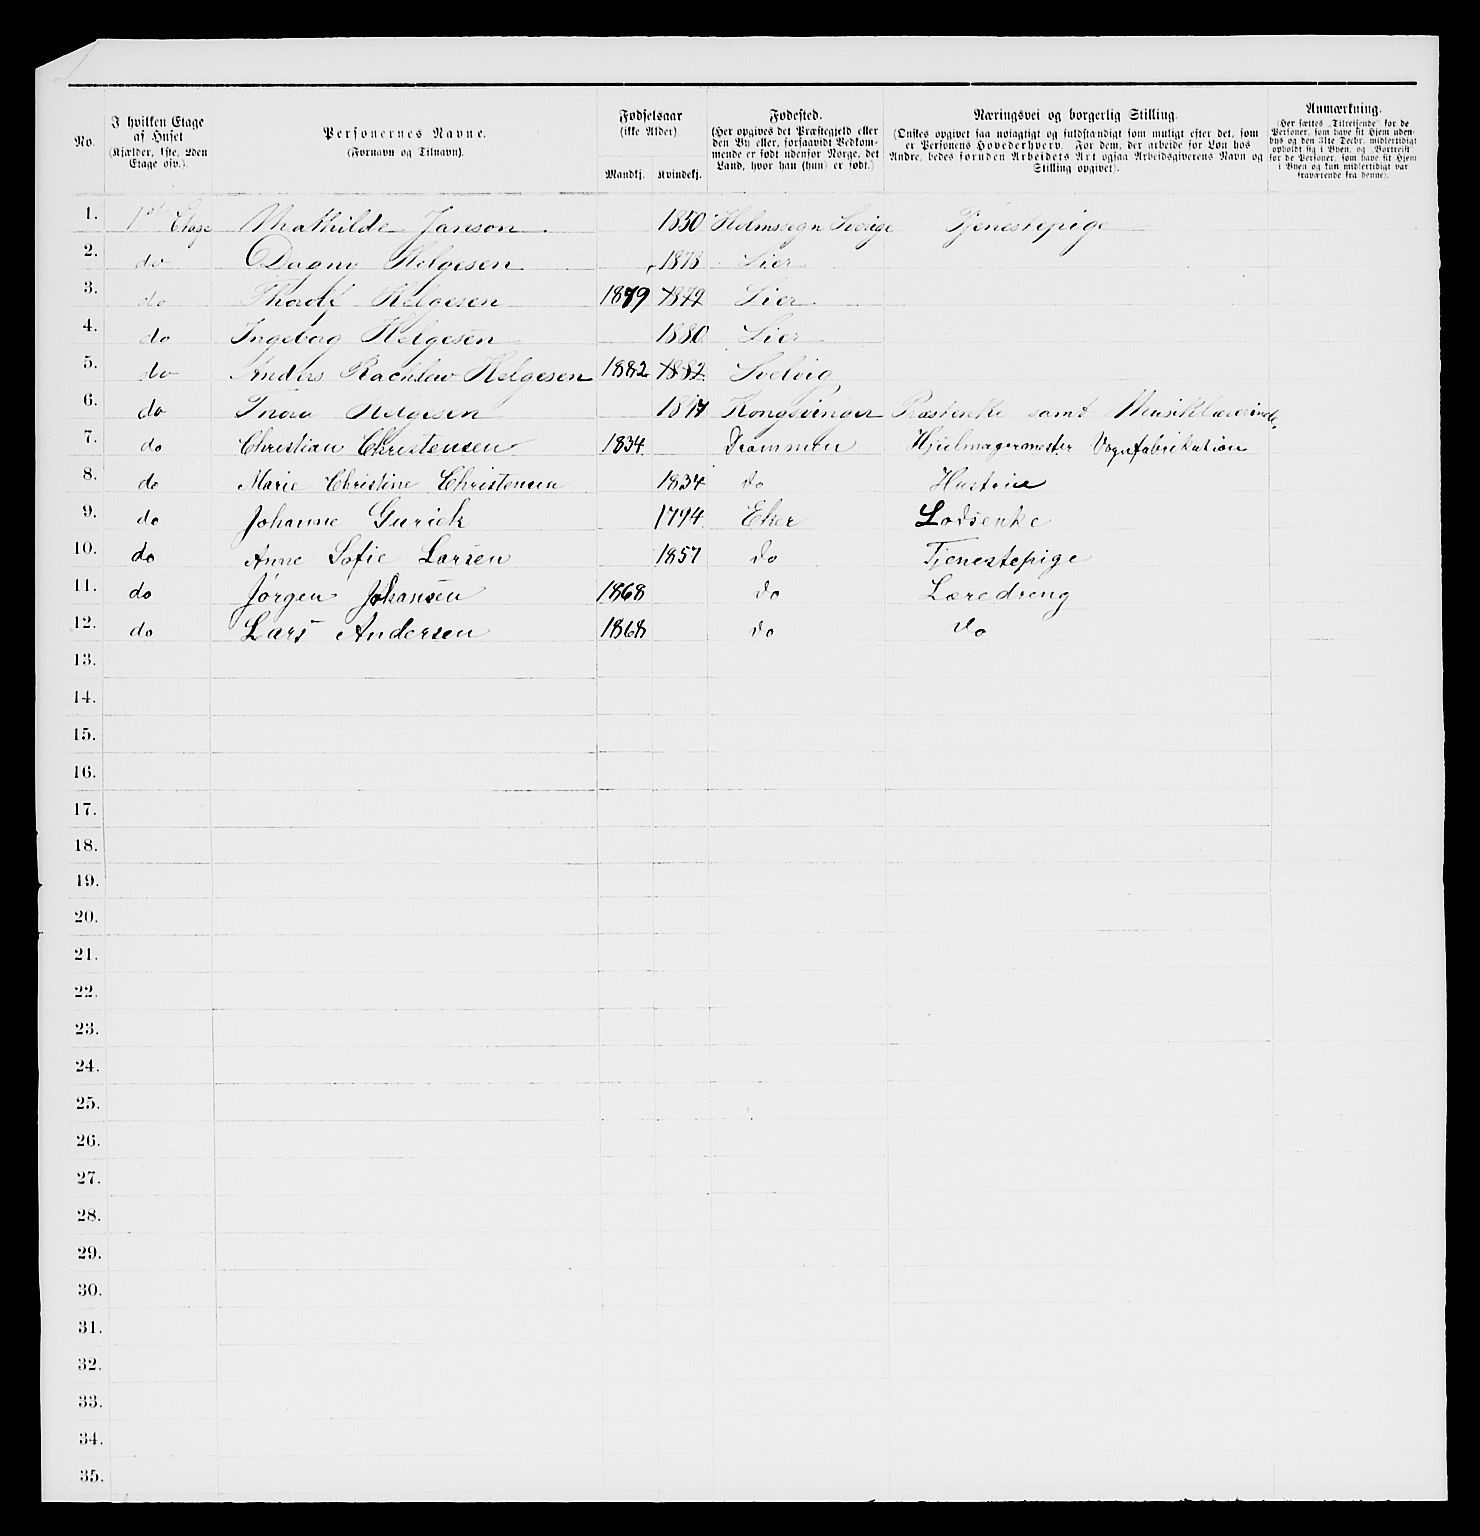 No.
I hvilken Etage
af Huset
(Kjælder, 1ste, 2den
Etage osv.).
Personernes Navne.
(Fornavn og Tilnavn).
Fødselsaar
(ikke Alder)
Mandkj. Kvindekj.
Fødested.
(Her opgives det Præstegjeld eller
den By eller, forsaavidt Vedkom-
mende er født udenfor Norge, det
Land, hvor han (hun) er født.)
Næringsvei og borgerlig Stilling.
(Ønskes opgivet saa nøiagtigt og fuldstændigt som muligt efter det, som
er Personens Hovederhverv. For dem, der arbeide for Løn hos
Andre, bedes foruden Arbeidets Art ogsaa Arbeidsgiverens Navn og
Stilling opgivet).
Anmærkning.
(Her sættes „Tilreisende" for de
Personer, som have sit Hjem uden-
bys og den 31te Decbr. midlertidigt
opholdt sig i Byen, og „Bortreist"
for de Personer, som have sit Hjem
i Byen og kun midlertidigt var
fraværende fra denne).
1. 1ste Etage Mathilde Janson. 1850 Holmssogn Sverige Tjenestepige
2. do Dagny Helgesen 1878 Lier
3. do Helgesen 1879 1879 Lier
4. do Ingeborg Helgesen 1880 Lier
5. do Anders Rachlew Helgesen 1882 1882 Svelvig
6. do Thora Helgesen Kongsvinger Præstenke samt Musiklærerinde.
7. do Christian Christensen 1834 Drammen Hjulmagermester Vognfabrikation
8. do Marie Christine Christensen 1834 do Hustrue
9. do Johanne Gurick 1794 Eker Lodsenke
10. do Anne Sofie Larsen 1857 do Tjenestepige
11. do Jørgen Johansen 1868 do Læredreng
12. do Lars Andersen 1868 do do
13.
14.
15.
16.
17.
18.
19.
20.
21.
22.
23.
24.
25.
26.
27.
28.
29.
30.
31.
32.
33.
34.
35.